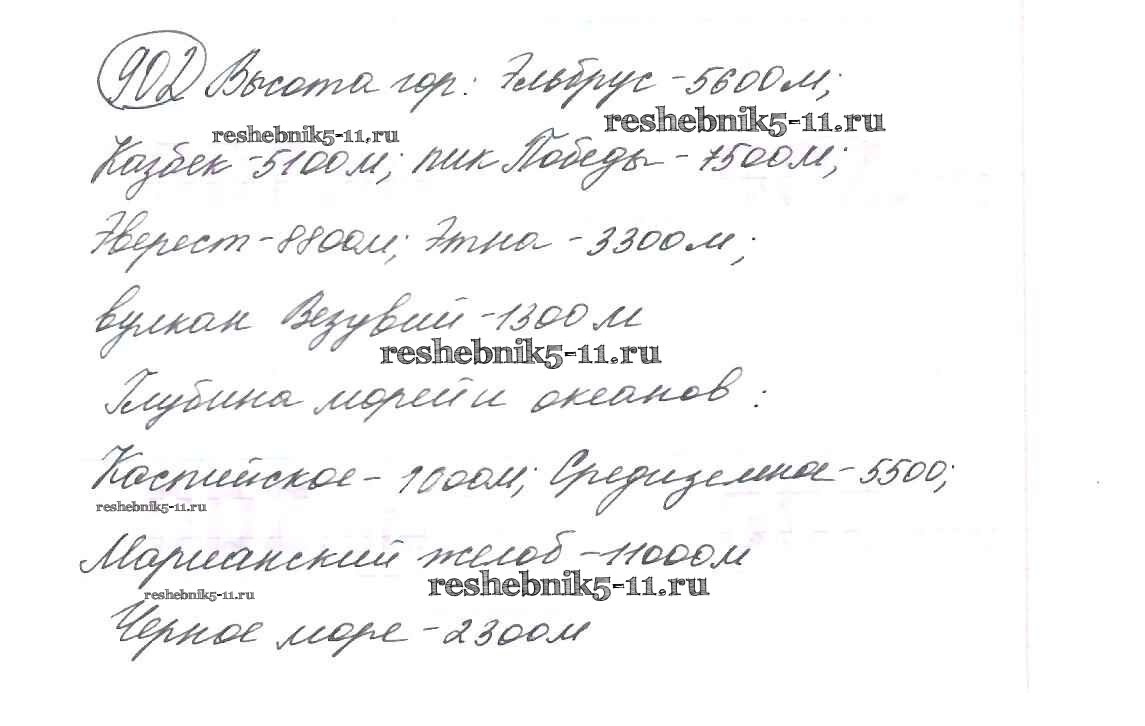 902 Высота гор: Эльбрус - 5600м;
reshebnik5-11.ru
reshebnik5-11.ru
Казбек - 5100м; пик Победы - 7500м;
Эверест - 8800м; Этна - 3300м;
вулкан Везувий - 1300м
reshebnik5-11.ru
Глубина морей и океанов:
Каспийское - 1000м; Средиземное - 5500;
reshebnik5-11.ru
Марианский желоб - 11000м
reshebnik5-11.ru
reshebnik5-11.ru
Черное море - 2300м